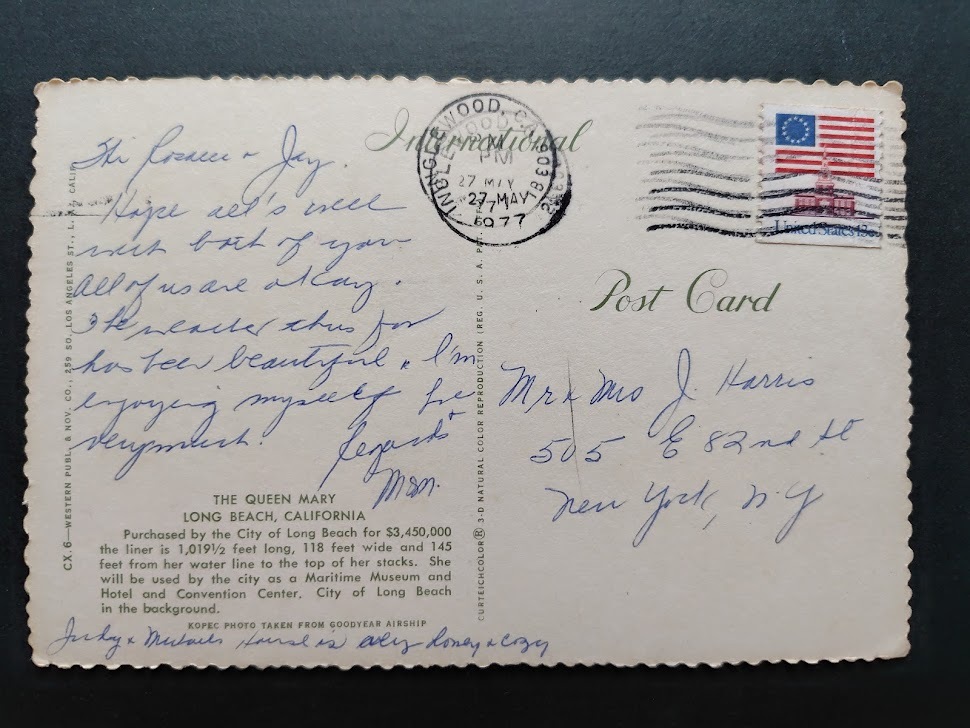 International
INGLEWOOD, CA
PM
27 MAY
1977
United States 13c
Post Card
Hi Rosalie & Jay.
Hope all's well
with both of you
All of us are okay.
The weather thus far
has been beautiful & I'm
enjoying myself
very much.
Love &
Regards
Mom.
Mr & Mrs J. Harris
505 E 82nd St
New York, N.Y
THE QUEEN MARY
LONG BEACH, CALIFORNIA
Purchased by the City of Long Beach for $3,450,000
the liner is 1,019½ feet long, 118 feet wide and 145
feet from her water line to the top of her stacks. She
will be used by the city as a Maritime Museum and
Hotel and Convention Center. City of Long Beach
in the background.
KOPEC PHOTO TAKEN FROM GOODYEAR AIRSHIP
Judy & Michael's House is very homey & cozy
CX. 6—WESTERN PUBL. & NOV. CO., 259 SO. LOS ANGELES ST., L. A., CALIF.
CURTEICHCOLOR® 3-D NATURAL COLOR REPRODUCTION (REG. U. S. A. PAT.